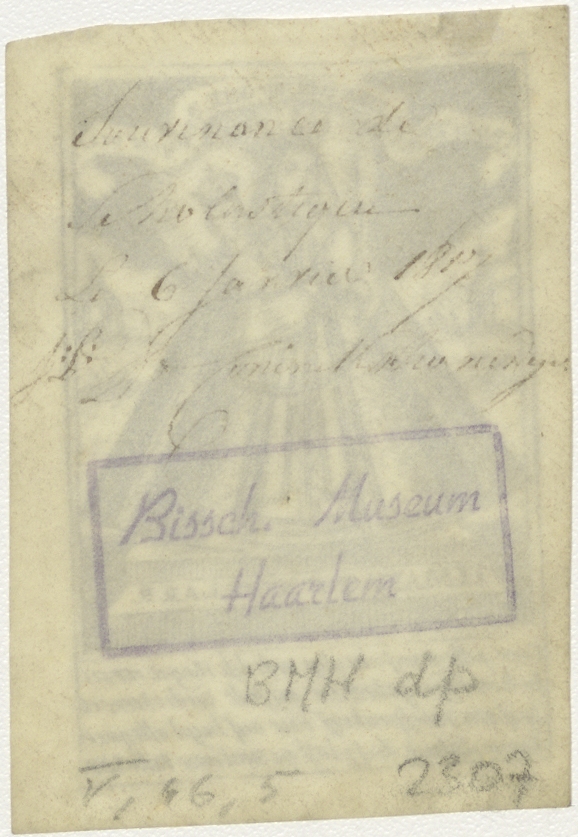 Souvenance de
Scholastique
Le 6 Janvier 1817
Bissch. Museum
Haarlem
BMH dp
V, 46, 5 2307